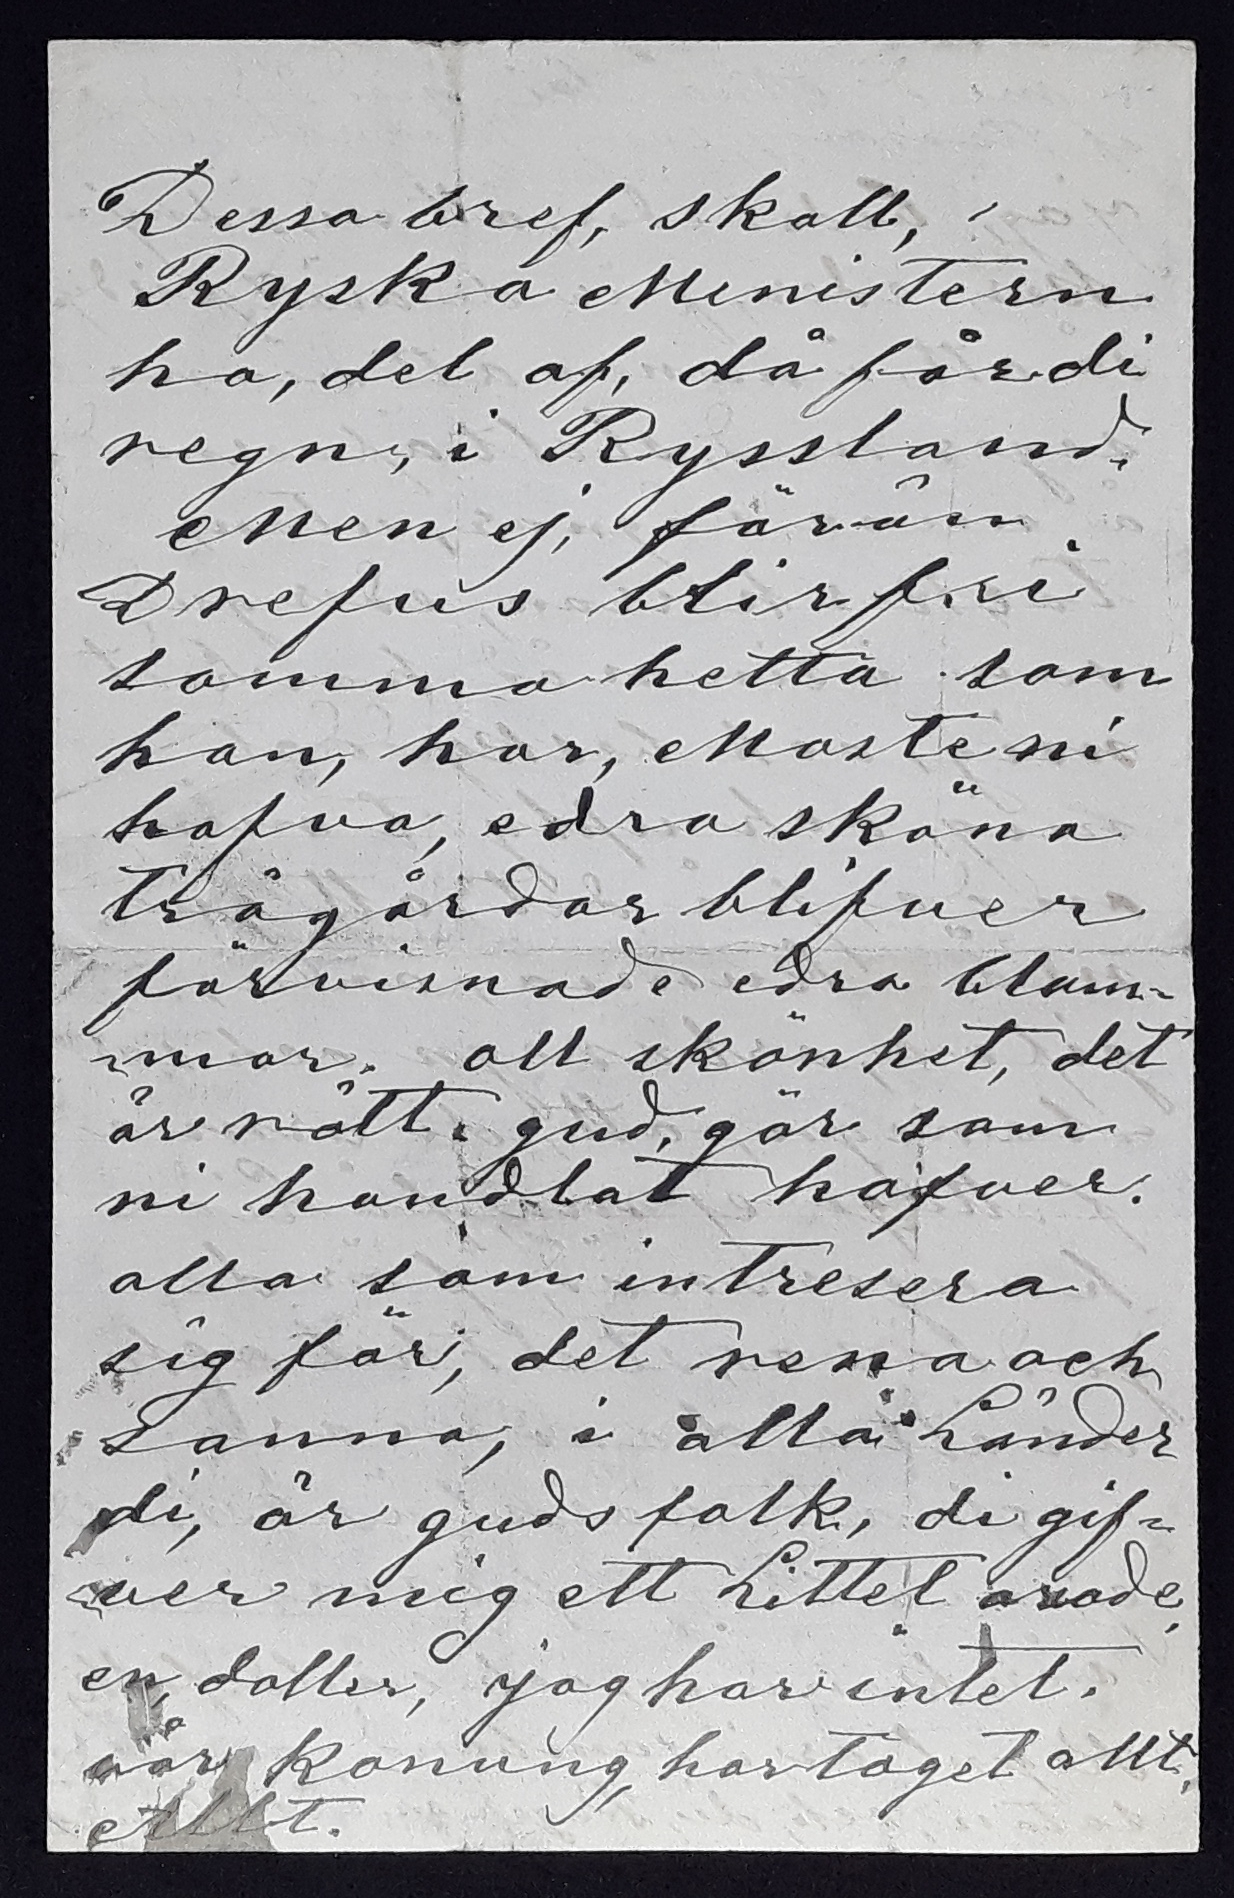 Dessa bref, skall, i
Ryska Ministern
ha, del af, då får di
regn, i Ryssland.
Men ej, förän
Drefus blir fri
samma hetta som
han, har, Måste ni
hafva, edra sköna
trägårdar blifver
förvisnade edra blom-
mor. all skönhet, det
är rätt. gud, gör som
ni handlat hafver.
alla som intresera
sig för, det rena och
sanna, i alla Länder
di, är guds folk, di gif-
ver mig ett Littet
en doller, jag har intet.
vår konung, har taget allt,
Allt.